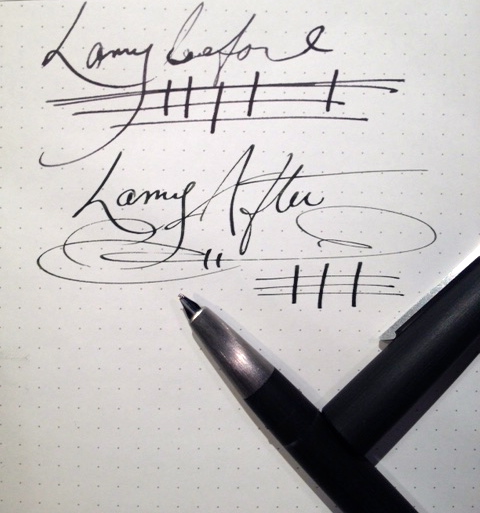 Lamy before
Lamy After